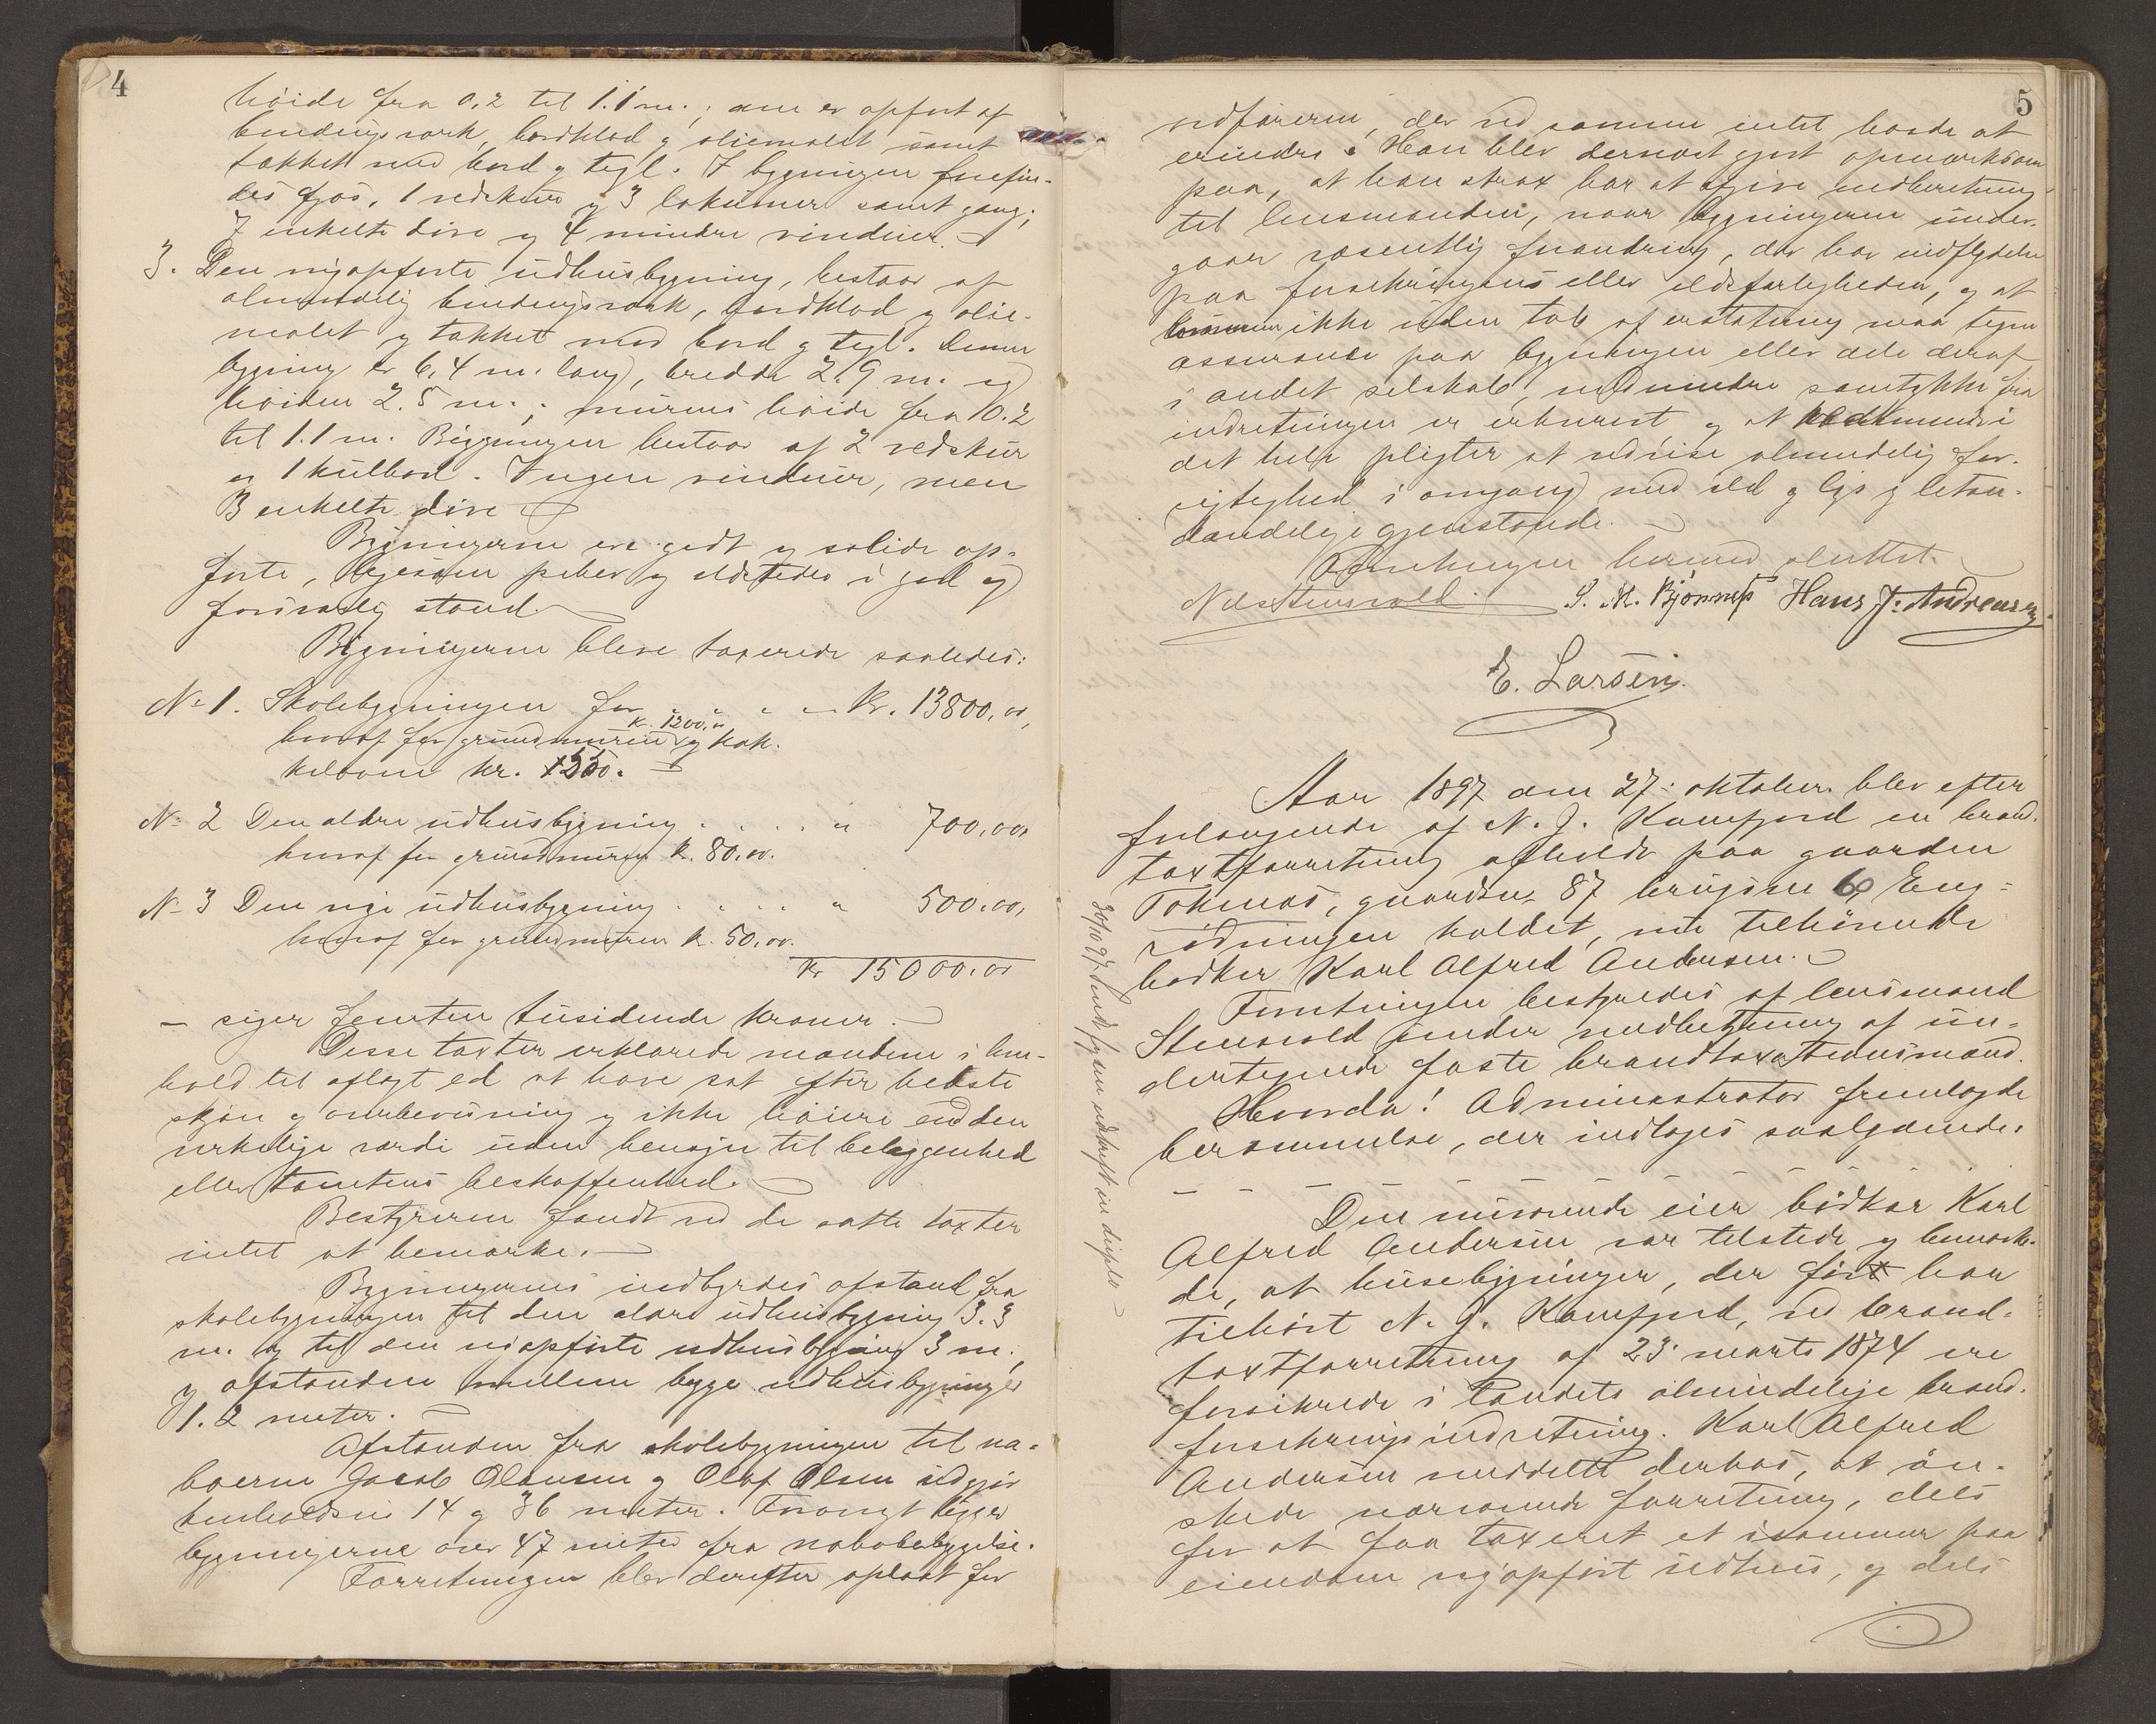 4
høide fra 0,2 til 1.1 m., den er opført af
bindingsværk, bordklæd & oliemalet samt
tækket med bord & tegl. I bygningen forefin-
des fjøs, 1 vedskur & 3 lokumer samt gang;
7 enkelte døre og 4 mindre vinduer.
3. Den nyopførte udhusbygning, bestaar af
almindelig bindingsværk, bordklæd & olie-
malet & tækket med bord & tegl. Denne
bygning er 6,4 m. lang, bredde 2.9 m. og
høiden 2.5 m.; murens høide fra 0.2
til 1.1 m. Bygningen bestaar af 2 vedskur
og 1 kulbod. Ingen vinduer, men
3 enkelte døre
Bygningerne ere godt & solide op-
førte, ligesom piber & ildsteder i god og
forsvarlig stand.
Bygningerne bleve taxerede saaledes:
No 1. Skolebygningen for " " " " Kr. 13800,00,
k. 1200,00
hvoraf for grundmuren & kak-
kelovne kr. 1550.
No 2 Den ældre udhusbygning . . . . " 700,00,
hvoraf for grundmuren k. 80,00.
No 3 Den nye udhusbygning . . . . " 500,00,
hvoraf for grundmuren k. 50,00.
kr 15000,00
- siger femten tusidende kroner.
Disse taxter erklærede mændene i hen-
hold til aflagt ed at have sat efter bedste
skjøn & overbevisning & ikke høiere end den
virkelige værdi uden hensyn til beliggenhed
eller tomtens beskaffenhed.
Bestyreren fandt ved de satte taxter
intet at bemærke.
Bygningernes indbyrdes afstand fra
skolebygningen til den ældre udhusbygning 3.3
m. og til den nyopførte udhusbygning 3 m.,
& afstanden mellem begge udhusbygninger
1.2 meter.
Afstanden fra skolebygningen til na-
boerne Jacob Olausen & Olaf Olsen udgjør
henholdsvis 14 & 36 meter. Forøvrigt ligger
bygningerne over 47 meter fra nabobebyggelse.
Forretningen blev derefter oplæst for
5
vedføreren, der ved samme intet havde at
erindre. Han blev dernæst gjort opmærksom
paa, at han strax har at afgive indberetning
til lensmanden, naar bygningerne under-
gaar væsentlig forandring, der har indflydelse
paa forsikringens eller ildsfarligheden, & at
ikke uden tab af erstatning maa tegne
assurance paa bygningen eller dele deraf
i andet selskab, medmindre samtykke fra
indretningen er erhvervet, & at vedkommende i
det hele pligter at udvise almindelig for-
sigtighed i omgang med ild & lys & letan-
tændelige gjenstande.
Forretningen hermed sluttet.
Nils Stensvold. S. M. Bjønnes Hans J. Andreasen
E. Larsen.
Aar 1897 den 27. oktober blev efter
forlangende af N. J. Kamfjord en brand-
taxtforretning afholdt paa gaarden
Toknæs, gaardsn. 87 brugsn 60, Eng-
rødningen kaldet, nu tilhørende
bødker Karl Alfred Andersen.
Forretningen bestyredes af lensmand
Stensvold under medbetjening af un-
dertegnede faste brandtaxationsmænd.
Hvorda! Administrator fremlagde
berammelse, der indtages saalydende:
- - - - - - - - -
Den nuværende eier bødker Karl
Alfred Andersen var tilstede & bemærke-
de, at husebygninger, der først har
tilhørt N. J. Kamfjord, ved brand-
taxtforretning af 23. marts 1874 ere
forsikrede i Landets almindelige brand-
forsikringsindretning. Karl Alfred
Andersen meddelte derhos, at øn-
skede nærværende forretning, dels
for at faa taxeret et i sommer paa
eiendom nyopført udhus, & dels
30/10 97 sendt fogden udskrift in duplo